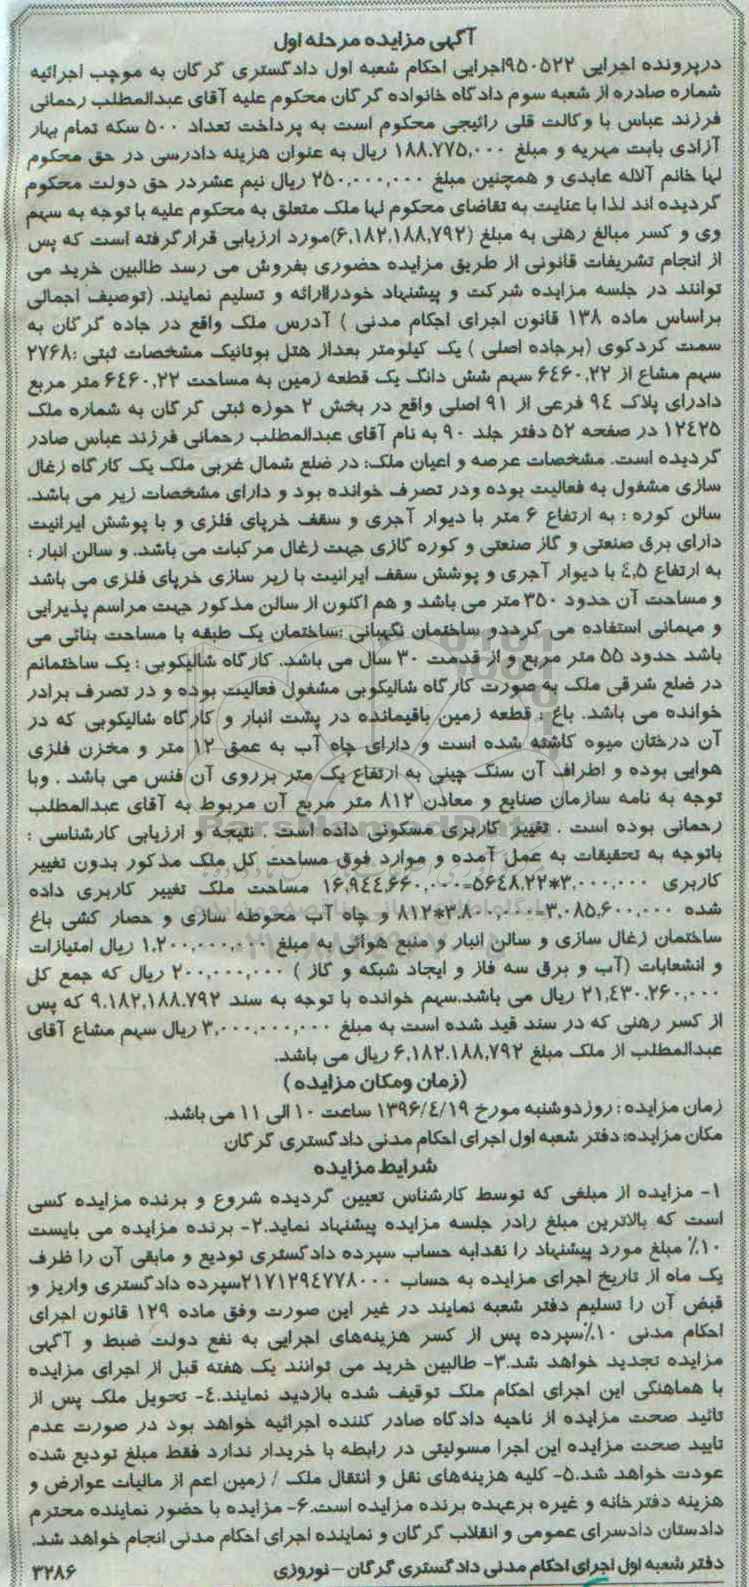 آگهی مزایده مرحله اول
درپرونده اجرایی ۹۵۰۵۲۲اجرایی احکام شعبه اول دادگستری گرگان به موجب اجرائیه
شماره صادره از شعبه سوم دادگاه خانواده گرگان محکوم علیه آقای عبدالمطلب رحمانی
فرزند عباس با وکالت قلی رائیجی محکوم است به پرداخت تعداد ۵۰۰ سکه تمام بهار
آزادی بابت مهریه و مبلغ ۱۸۸.۷۷۵,۰۰۰ ریال به عنوان هزینه دادرسی در حق محکوم
لها خانم آلاله عابدی و همچنین مبلغ ۲۵۰,۰۰۰,۰۰۰ ریال نیم عشردر حق دولت محکوم
گردیده اند لذا با عنایت به تقاضای محکوم لها ملک متعلق به محکوم علیه با توجه به سهم
وی و کسر مبالغ رهنی به مبلغ (۶,۱۸۲,۱۸۸,۷۹۲)مورد ارزیابی قرارگرفته است که پس
از انجام تشریفات قانونی از طریق مزایده حضوری بفروش می رسد طالبین خرید می
توانند در جلسه مزایده شرکت و پیشنهاد خودراارائه و تسلیم نمایند. (توصیف اجمالی
براساس ماده ۱۳۸ قانون اجرای احکام مدنی ) آدرس ملک واقع در جاده گرگان به
سمت کردکوی (برجاده اصلی ) یک کیلومتر بعداز هتل بوتانیک مشخصات ثبتی :۲۷۶۸
سهم مشاع از ۶٤۶۰,۲۲ سهم شش دانگ یک قطعه زمین به مساحت ۶٤۶۰,۲۲ متر مربع
دادرای پلاک ۹٤ فرعی از ۹۱ اصلی واقع در بخش ۲ حوزه ثبتی گرگان به شماره ملک
۱۲٤۲۵ در صفحه ۵۲ دفتر جلد ۹۰ به نام آقای عبدالمطلب رحمانی فرزند عباس صادر
گردیده است. مشخصات عرصه و اعیان ملک: در ضلع شمال غربی ملک یک کارگاه زغال
سازی مشغول به فعالیت بوده ودر تصرف خوانده بود و دارای مشخصات زیر می باشد.
سالن کوره : به ارتفاع ۶ متر با دیوار آجری و سقف خرپای فلزی و با پوشش ایرانیت
دارای برق صنعتی و گاز صنعتی و کوره گازی جهت زغال مرکبات می باشد. و سالن انبار :
به ارتفاع ٤,۵ با دیوار آجری و پوشش سقف ایرانیت با زیر سازی خرپای فلزی می باشد
و مساحت آن حدود ۳۵۰ متر می باشد و هم اکنون از سالن مذکور جهت مراسم پذیرایی
و مهمانی استفاده می گرددو ساختمان نگهبانی :ساختمان یک طبقه با مساحت بنائی می
باشد حدود ۵۵ متر مربع و از قدمت ۳۰ سال می باشد. کارگاه شالیکوبی : یک ساختمانم
در ضلع شرقی ملک به صورت کارگاه شالیکوبی مشغول فعالیت بوده و در تصرف برادر
خوانده می باشد. باغ : قطعه زمین باقیمانده در پشت انبار و کارگاه شالیکوبی که در
آن درختان میوه کاشته شده است و دارای چاه آب به عمق ۱۲ متر و مخزن فلزی
هوایی بوده و اطراف آن سنگ چینی به ارتفاع یک متر برروی آن فنس می باشد . وبا
توجه به نامه سازمان صنایع و معادن ۸۱۲ متر مربع آن مربوط به آقای عبدالمطلب
رحمانی بوده است . تغییر کاربری مسکونی داده است . نتیجه و ارزیابی کارشناسی :
باتوجه به تحقیقات به عمل آمده و موارد فوق مساحت کل ملک مذکور بدون تغییر
کاربری ۳,۰۰۰,۰۰۰*۵۶٤۸,۲۲=۱۶,۹٤٤,۶۶۰,۰۰۰ مساحت ملک تغییر کاربری داده
شده ۳,۰۸۵,۶۰۰,۰۰۰=۳,۸۰۰,۰۰۰*۸۱۲ و چاه آب محوطه سازی و حصار کشی باغ
ساختمان زغال سازی و سالن انبار و منبع هوائی به مبلغ ۱,۲۰۰,۰۰۰,۰۰۰ ریال امتیازات
و انشعابات (آب و برق سه فاز و ایجاد شبکه و گاز ) ۲۰۰,۰۰۰,۰۰۰ ریال که جمع کل
۲۱,٤۳۰,۲۶۰,۰۰۰ ریال می باشد.سهم خوانده با توجه به سند ۹,۱۸۲,۱۸۸,۷۹۲ که پس
از کسر رهنی که در سند قید شده است به مبلغ ۳,۰۰۰,۰۰۰,۰۰۰ ریال سهم مشاع آقای
عبدالمطلب از ملک مبلغ ۶,۱۸۲,۱۸۸,۷۹۲ ریال می باشد.
(زمان ومکان مزایده )
زمان مزایده : روزدوشنبه مورخ ۱۳۹۶/٤/۱۹ ساعت ۱۰ الی ۱۱ می باشد.
مکان مزایده: دفتر شعبه اول اجرای احکام مدنی دادگستری گرگان
شرایط مزایده
۱- مزایده از مبلغی که توسط کارشناس تعیین گردیده شروع و برنده مزایده کسی
است که بالاترین مبلغ رادر جلسه مزایده پیشنهاد نماید.۲- برنده مزایده می بایست
۱۰٪ مبلغ مورد پیشنهاد را نقدابه حساب سپرده دادگستری تودیع و مابقی آن را ظرف
یک ماه از تاریخ اجرای مزایده به حساب ۲۱۷۱۲۹٤۷۷۸۰۰۰سپرده دادگستری واریز و
قبض آن را تسلیم دفتر شعبه نمایند در غیر این صورت وفق ماده ۱۲۹ قانون اجرای
احکام مدنی ۱۰٪سپرده پس از کسر هزینه‌های اجرایی به نفع دولت ضبط و آگهی
مزایده تجدید خواهد شد.۳- طالبین خرید می توانند یک هفته قبل از اجرای مزایده
با هماهنگی این اجرای احکام ملک توقیف شده بازدید نمایند.٤- تحویل ملک پس از
تائید صحت مزایده از ناحیه دادگاه صادر کننده اجرائیه خواهد بود در صورت عدم
تایید صحت مزایده این اجرا مسولیتی در رابطه با خریدار ندارد فقط مبلغ تودیع شده
عودت خواهد شد.۵- کلیه هزینه‌های نقل و انتقال ملک / زمین اعم از مالیات عوارض و
هزینه دفترخانه و غیره برعهده برنده مزایده است.۶- مزایده با حضور نماینده محترم
دادستان دادسرای عمومی و انقلاب گرگان و نماینده اجرای احکام مدنی انجام خواهد شد.
دفتر شعبه اول اجرای احکام مدنی دادگستری گرگان – نوروزی ۳۲۸۶